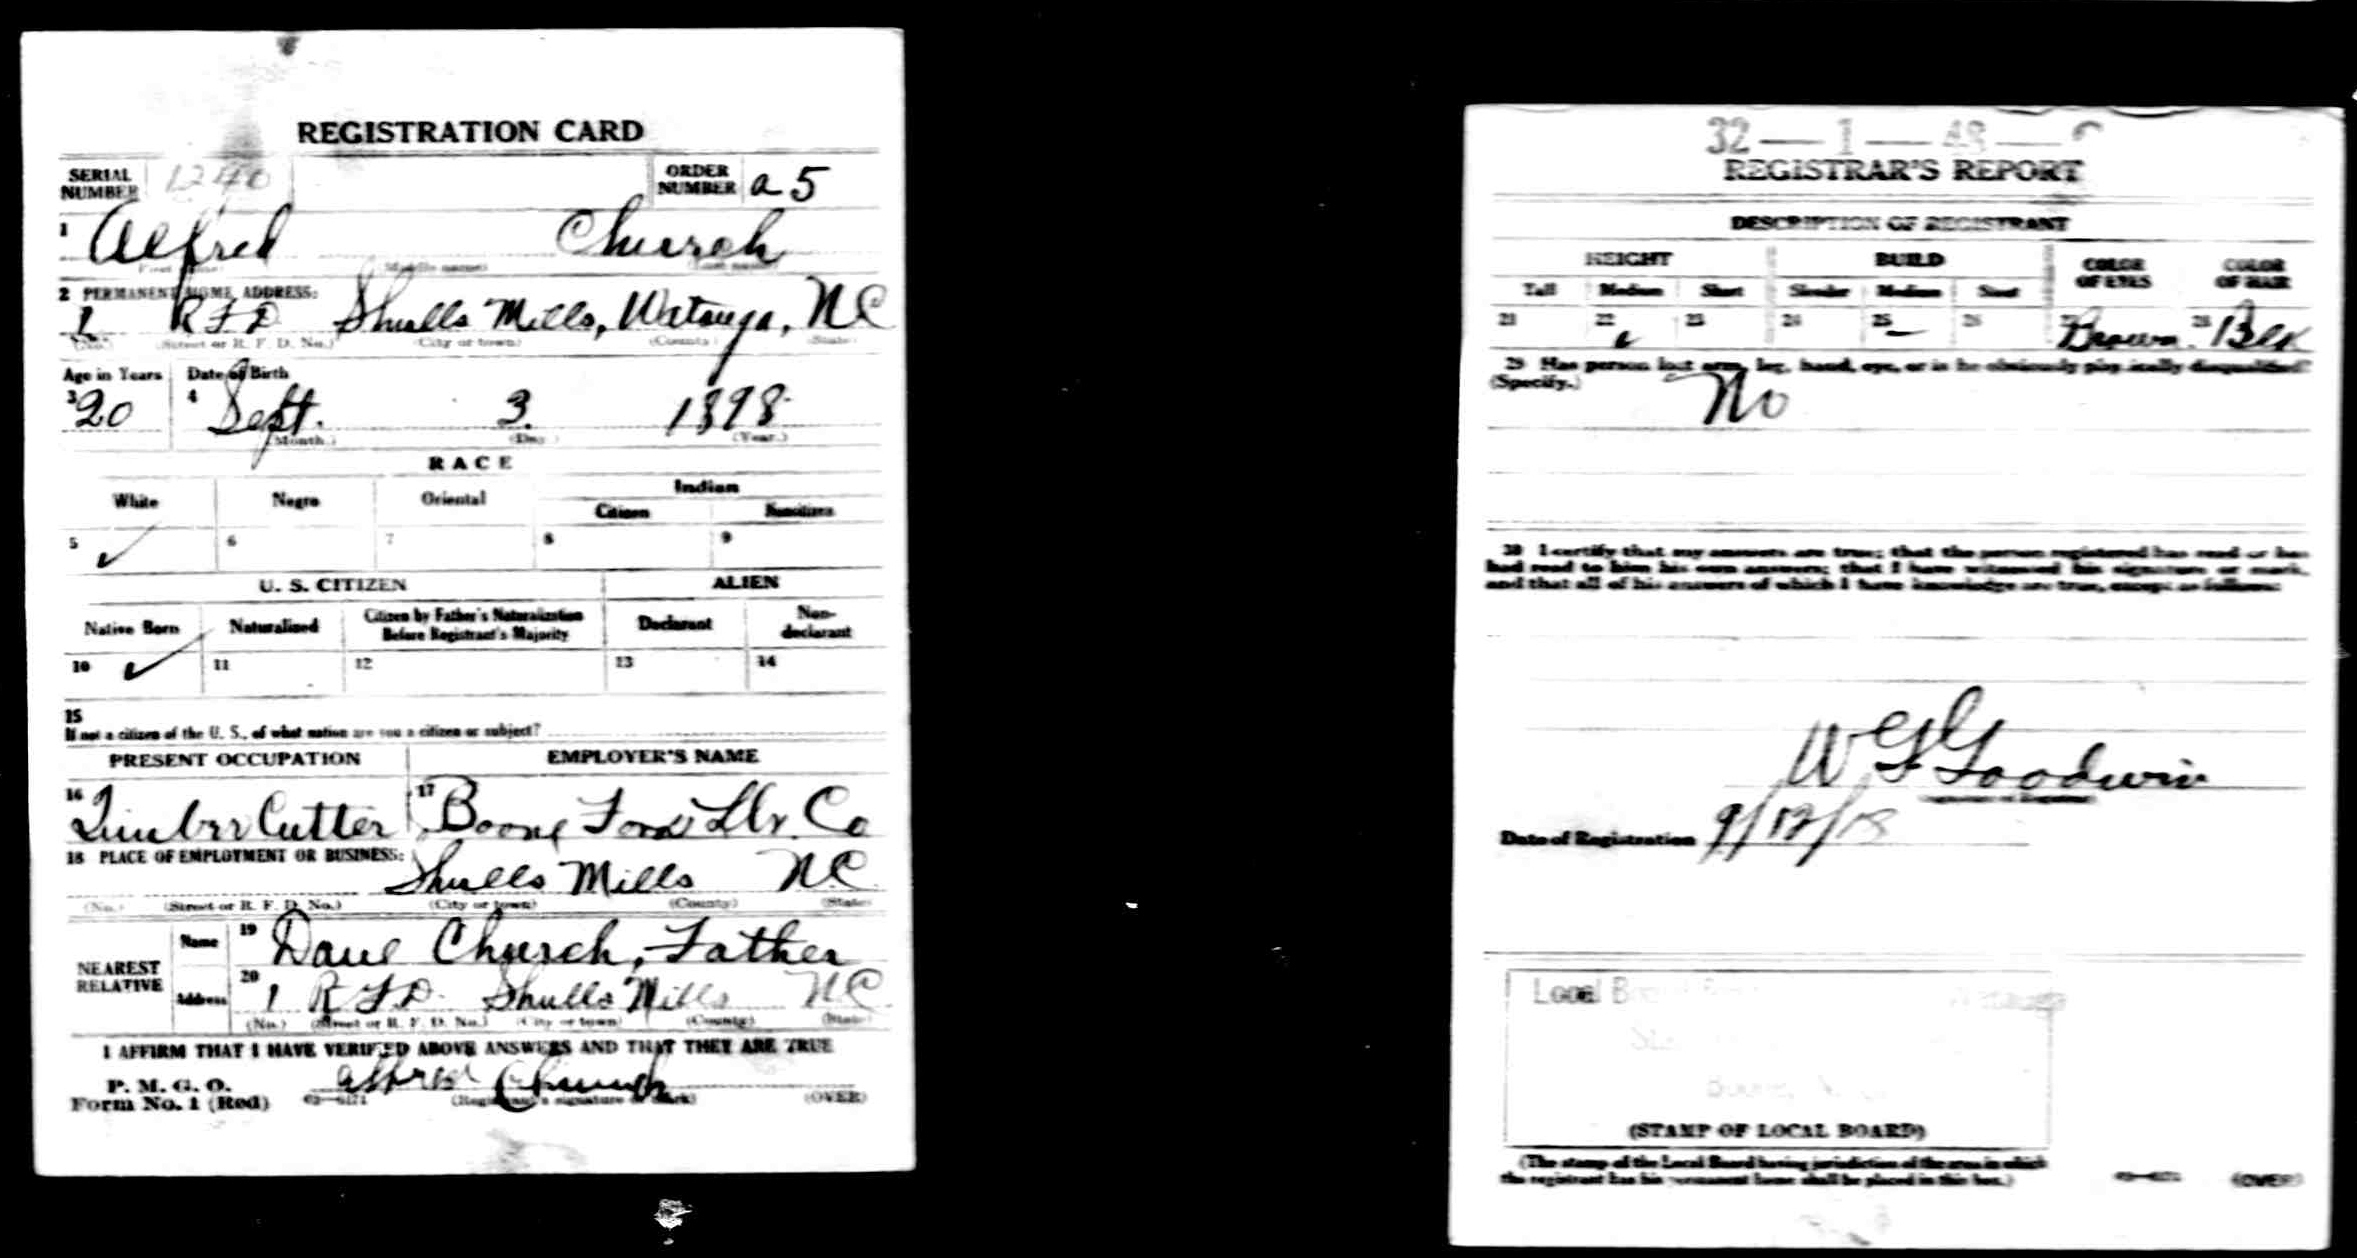 REGISTRATION CARD
SERIAL NUMBER 1240 ORDER NUMBER a5
1 Alfred Church
(Middle name) (Last name)
2 PERMANENT HOME ADDRESS:
1 RFD Shulls Mills, Watauga, NC
(No.) (Street or R. F. D. No.) (City or town) (County) (State)
Age in Years Date of Birth
3 20 4 Sept. 3. 1898
(Month.) (Day.) (Year.)
RACE
White Negro Oriental Indian
Citizen Noncitizen
5 ✓ 6 7 8 9
U. S. CITIZEN ALIEN
Native Born Naturalized Citizen by Father's Naturalization Before Registrant's Majority Declarant Non-declarant
10 ✓ 11 12 13 14
15
If not a citizen of the U. S., of what nation are you a citizen or subject?
PRESENT OCCUPATION EMPLOYER'S NAME
16 Timber Cutter 17 Boone Co
18 PLACE OF EMPLOYMENT OR BUSINESS:
Shulls Mills N.C.
(No.) (Street or R. F. D. No.) (City or town) (County) (State)
NEAREST RELATIVE Name 19 Dave Church, Father
Address 20 1 RFD. Shulls Mills NC
(No.) (Street or R. F. D. No.) (City or town) (County) (State)
I AFFIRM THAT I HAVE VERIFIED ABOVE ANSWERS AND THAT THEY ARE TRUE
P. M. G. O.
Form No. 1 (Red) Alfred Church
(Registrant's signature or mark) (OVER)
32—1—48—C
REGISTRAR'S REPORT
DESCRIPTION OF REGISTRANT
HEIGHT BUILD COLOR OF EYES COLOR OF HAIR
Tall Medium Short Slender Medium Stout
21 22 ✓ 23 24 25 – 26 Brown 28 Blk
29 Has person lost arm, leg, hand, eye, or is he obviously physically disqualified?
(Specify.) No
30 I certify that my answers are true; that the person registered has read or has
had read to him his own answers; that I have witnessed his signature or mark,
and that all of his answers of which I have knowledge are true, except as follows:
W G Goodwin
(Signature of Registrar)
Date of Registration 9/12/18
Local Board Watauga
(STAMP OF LOCAL BOARD)
(The stamp of the Local Board having jurisdiction of the area in which
the registrant has his permanent home shall be placed in this box.)
(OVER)